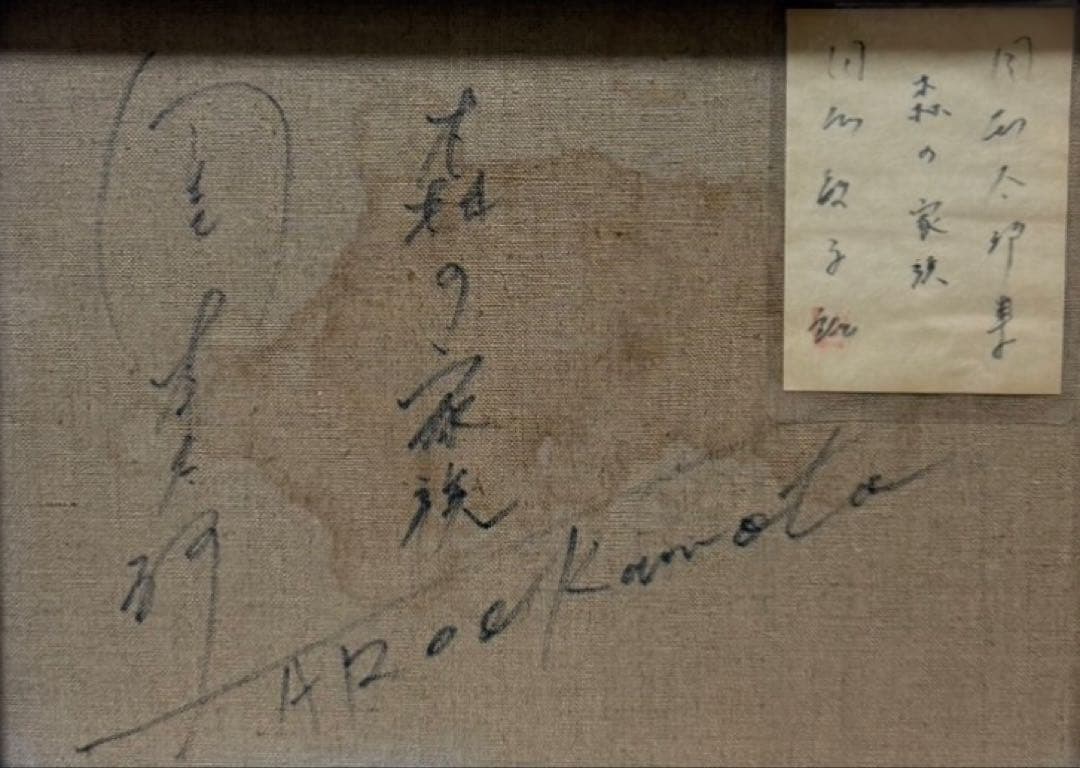 岡本太郎筆
森の家族
岡本敏子
森の家族
岡本太郎
TARO okamoto